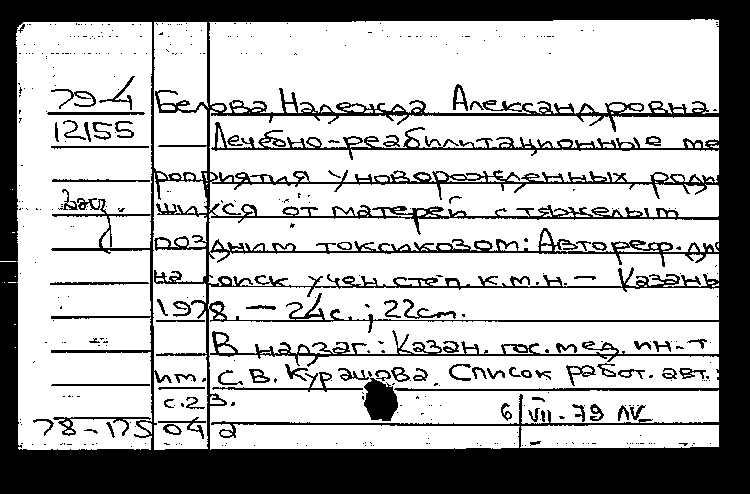 79-4 Белова, Надежда Александровна.
12155 Лечебно-реабилитационные ме
роприятия у новорожденных, роди
шихся от матерей с тяжелым
поздним токсикозом: Автореф. ди
на соиск учен. степ. к.м.н. — Казань
1978. — 24с.; 22см.
В надзаг.: Казан. гос. мед. ин-т
им. С.В. Курашова. Список работ. авт.:
с.23.
6/VII-79
78-17504 а